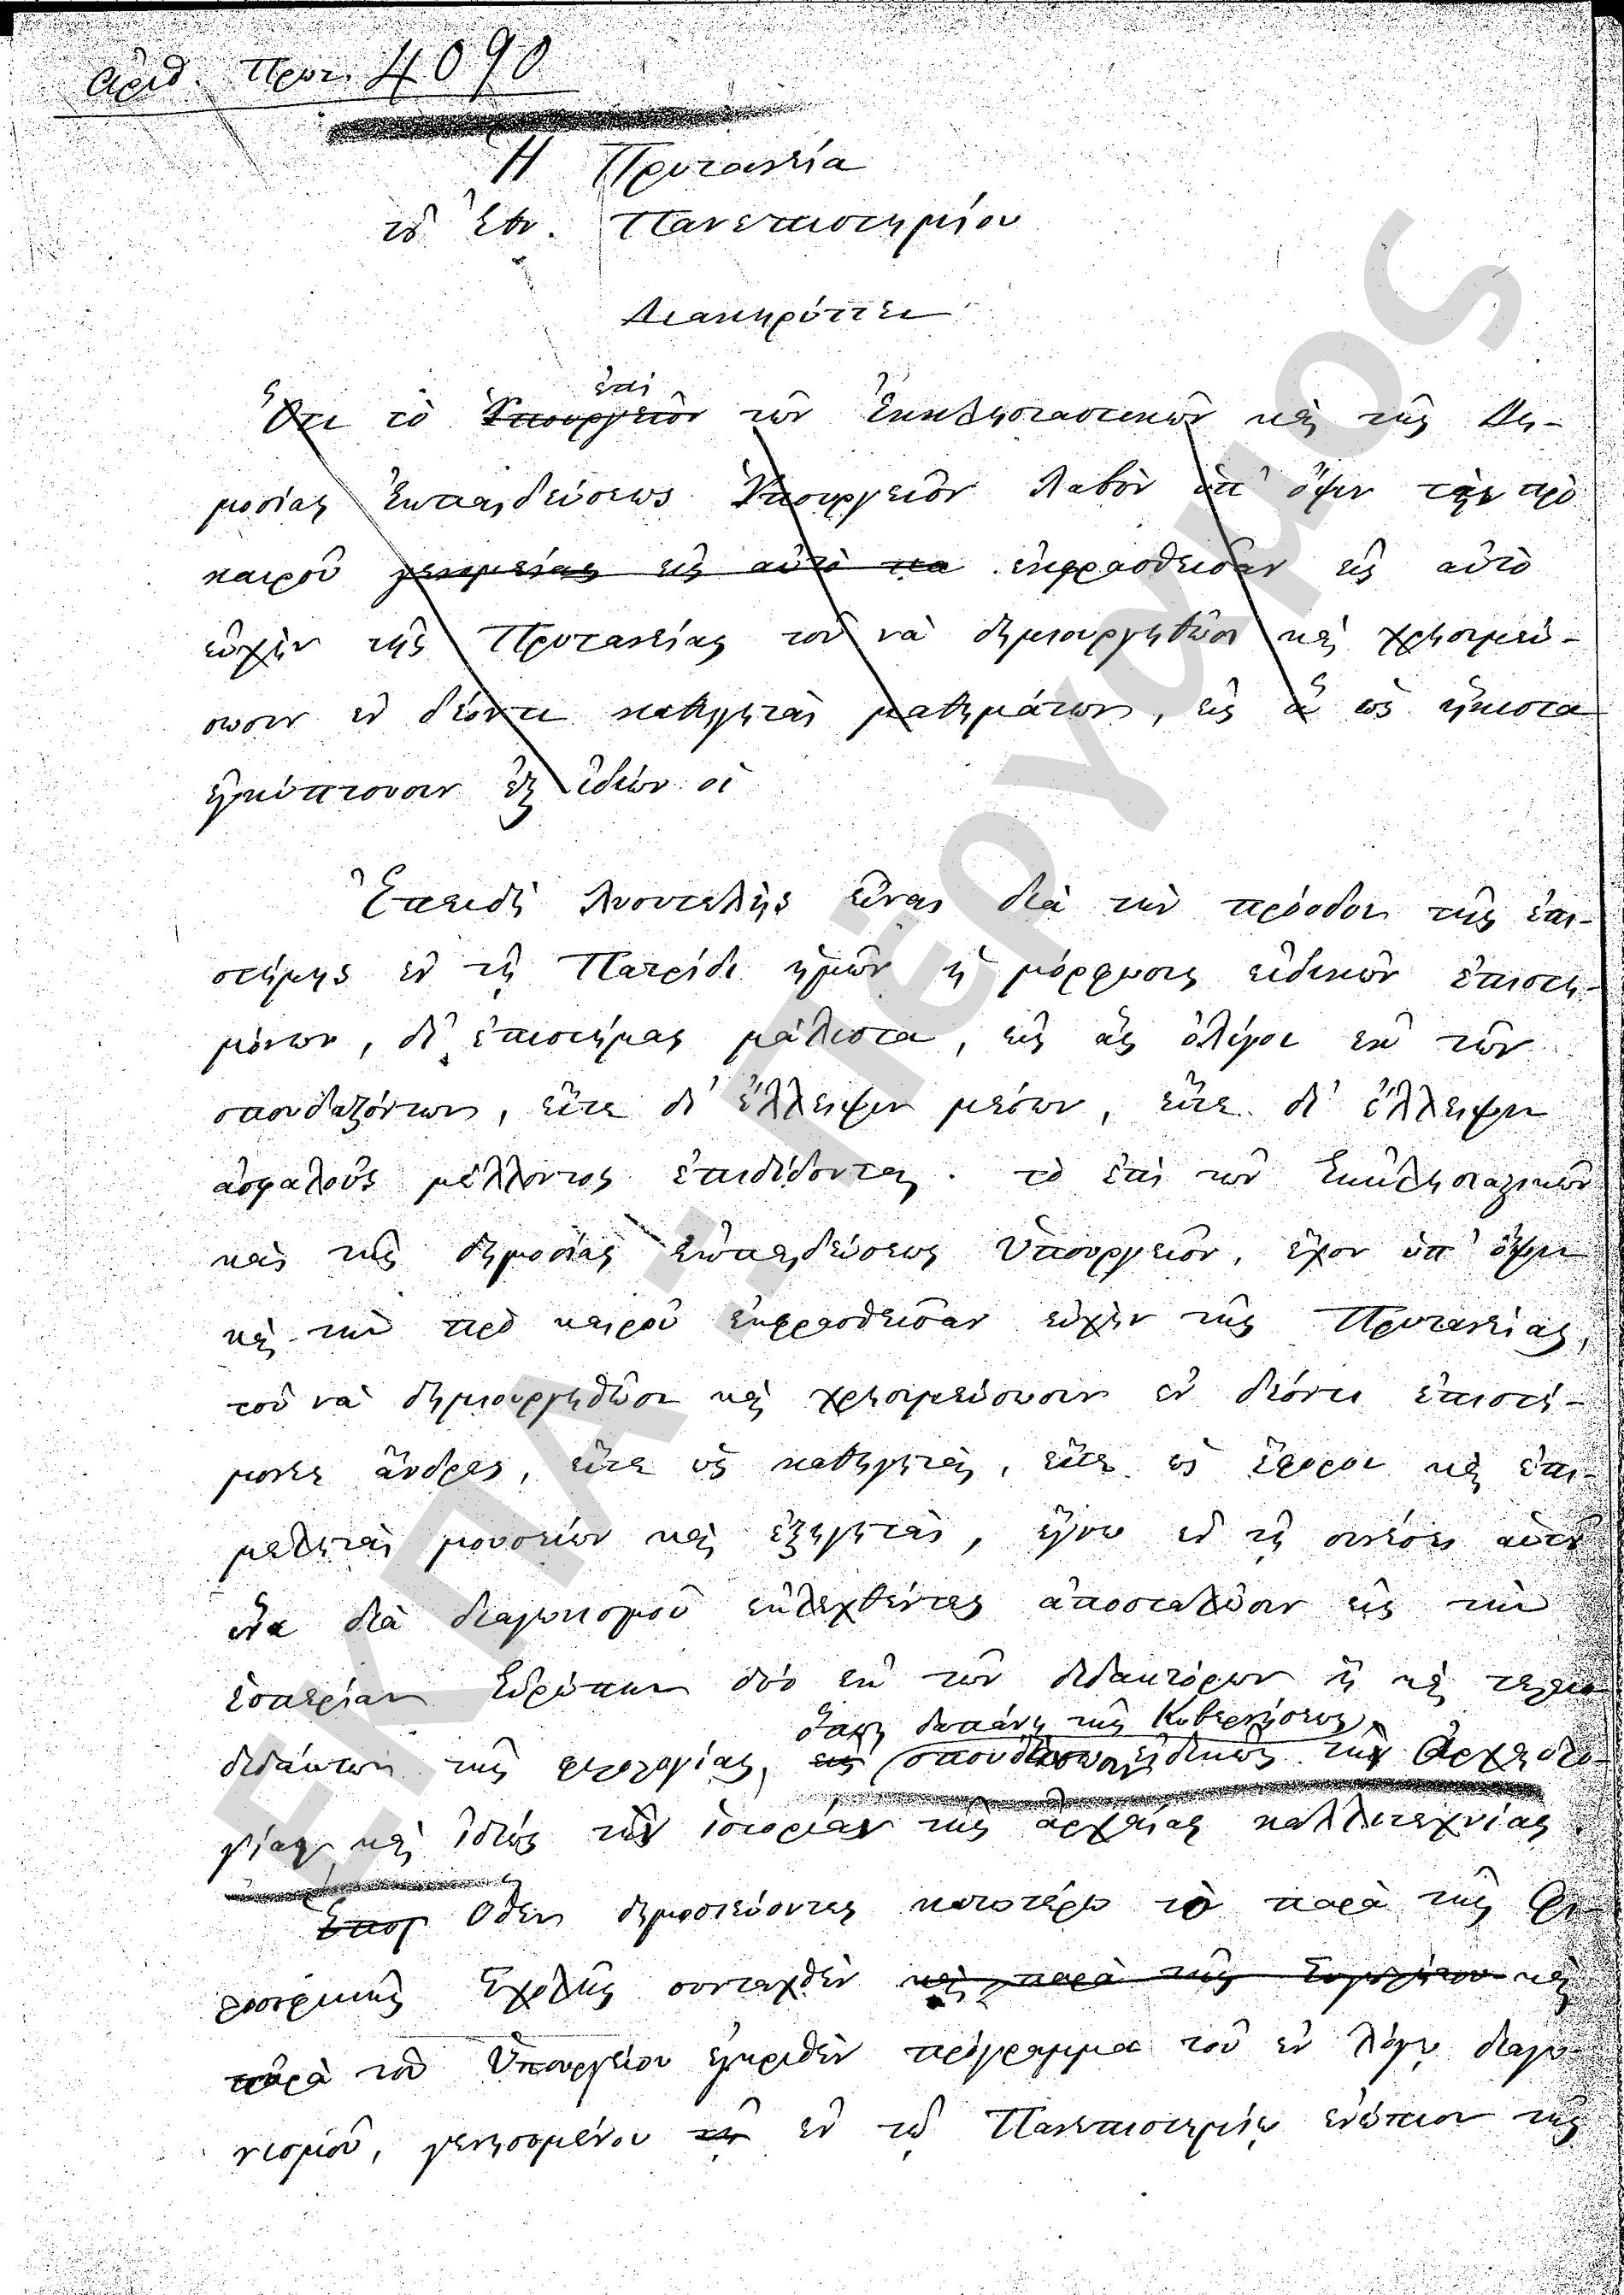 ἀριθ. Πρωτ. 4090
Ἡ Πρυτανεία
τοῦ Ἐθν. Πανεπιστημίου
Διακηρύττει
ἐπὶ
Ὅτι τὸ Ὑπουργεῖον τῶν Ἐκκλησιαστικῶν καὶ τῆς Δη-
μοσίας Ἐκπαιδεύσεως Ὑπουργεῖον λαβὸν ὑπ' ὄψιν τὴν πρὸ
καιροῦ γενομένας εἰς αὐτὸ ἐκφρασθεῖσαν εἰς αὐτὸ
εὐχὴν τῆς Πρυτανείας τοῦ νὰ δημιουργηθῶσι καὶ χρησιμεύ-
σωσιν ἐν δέοντι καθηγηταὶ μαθημάτων, εἰς ἃ ὡς ἥκιστα
ἐγκύπτουσιν ἐξ ἰδίων οἱ
Ἐπειδὴ λυσιτελὴς εἶναι διὰ τὴν πρόοδον τῆς ἐπι-
στήμης ἐν τῇ Πατρίδι ἡμῶν ἡ μόρφωσις εἰδικῶν ἐπιστη-
μόνων, δι' ἐπιστήμας μάλιστα, εἰς ἃς ὀλίγοι ἐκ τῶν
σπουδαζόντων, εἴτε δι' ἔλλειψιν μέσων, εἴτε δι' ἔλλειψιν
ἀσφαλοῦς μέλλοντος ἐπιδίδονται· τὸ ἐπὶ τῶν Ἐκκλησιαστικῶν
καὶ τῆς δημοσίας Ἐκπαιδεύσεως Ὑπουργεῖον, ἔχον ὑπ' ὄψιν
καὶ τὴν πρὸ καιροῦ ἐκφρασθεῖσαν εὐχὴν τῆς Πρυτανείας,
τοῦ νὰ δημιουργηθῶσι καὶ χρησιμεύσωσιν ἐν δέοντι ἐπιστή-
μονες ἄνδρες, εἴτε ὡς καθηγηταὶ, εἴτε ὡς ἔφοροι καὶ ἐπι-
μεληταὶ μουσείων καὶ ἐξηγηταὶ, ἔγνω ἐν τῇ συνέσει αὐτοῦ
ἵνα διὰ διαγωνισμοῦ ἐκλεχθέντες ἀποσταλῶσιν εἰς τὴν
ἑσπερίαν Εὐρώπην δύο ἐκ τῶν διδακτόρων ἢ καὶ τελειο
ὅπως δαπάνῃ τῆς Κυβερνήσεως
διδάκτων τῆς φιλολογίας, εἰς σπουδάσωσιν εἰδικῶς τὴν Ἀρχαιολο-
γίαν καὶ ἰδίως τὴν ἱστορίαν τῆς ἀρχαίας καλλιτεχνίας.
Ὅθεν δημοσιεύοντες κατωτέρω τὸ παρὰ τῆς Φι-
λοσοφικῆς Σχολῆς συνταχθὲν καὶ παρὰ τῆς Συγκλήτου καὶ
παρὰ τοῦ Ὑπουργείου ἐγκριθὲν πρόγραμμα τοῦ ἐν λόγῳ διαγω-
νισμοῦ, γενησομένου ἐν τῷ Πανεπιστημίῳ ἐνώπιον τῆς
ΕΚΠΑ: Πέργαμος